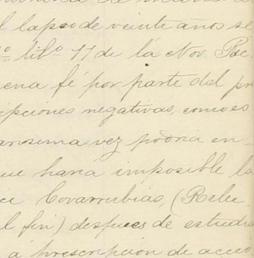 l lapso de veinte años se
º libº 11 de la Nov. Rec
ena fé por parte del pr
epciones negativas, como es
arosima vez podria en
ue haria imposible la
Covarrubias, (Relec
l fin) despues de estudia
a prescripcion de accio